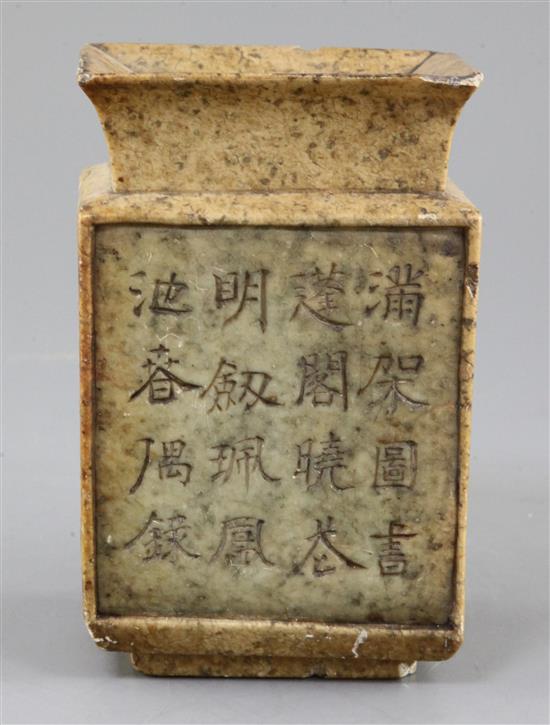 滿架圖書
蓬閣曉花
明劔珮鳳
池春偶録